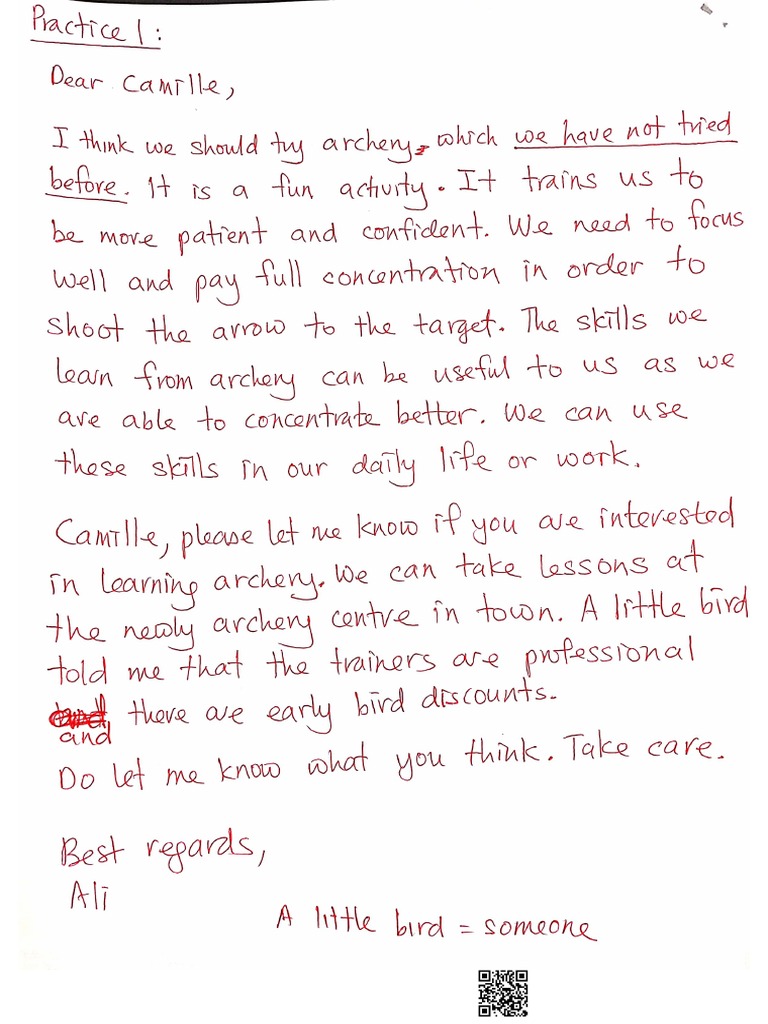 Practice 1:
Dear Camille,
I think we should try archery, which we have not tried
before. It is a fun activity. It trains us to
be more patient and confident. We need to focus
well and pay full concentration in order to
shoot the arrow to the target. The skills we
learn from archery can be useful to us as we
are able to concentrate better. We can use
these skills in our daily life or work.
Camille, please let me know if you are interested
in learning archery. We can take lessons at
the newly archery centre in town. A little bird
told me that the trainers are professional
and there are early bird discounts.
Do let me know what you think. Take care.
Best regards,
Ali
A little bird = someone